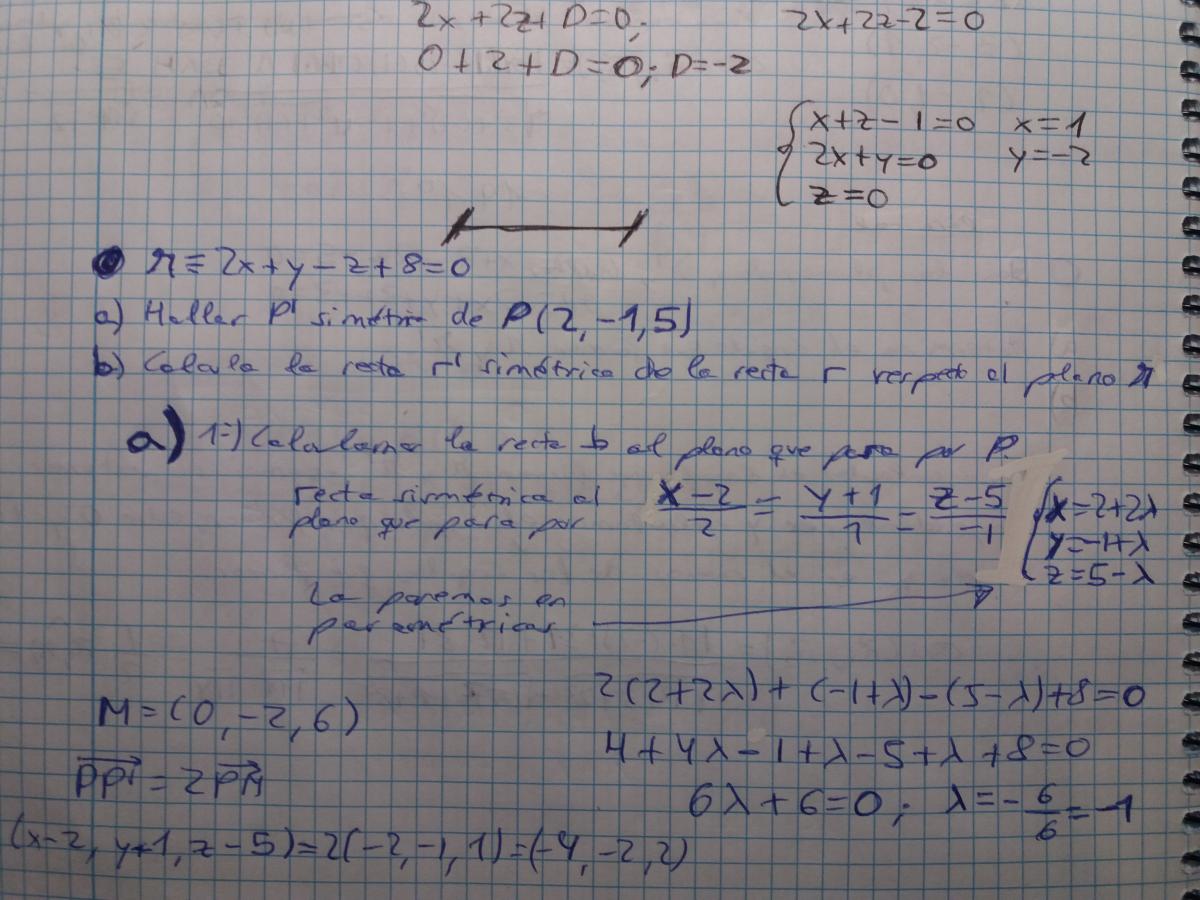 2x+2z+D=0; 2x+2z-2=0
0+2+D=0; D=-2
x+z-1=0 x=1
2x+y=0 y=-2
z=0
π≡2x+y-z+8=0
a) Hallar P' simétrico de P(2,-1,5)
b) Calcula la recta r' simétrica de la recta r respecto al plano π
a) 1º) Calculamos la recta ⊥ al plano que pasa por P
recta simétrica al
plano que pasa por
(x-2)/2 = (y+1)/1 = (z-5)/-1
x=2+2λ
y=-1+λ
z=5-λ
La ponemos en
paramétricas
2(2+2λ)+(-1+λ)-(5-λ)+8=0
M=(0,-2,6)
4+4λ-1+λ-5+λ+8=0
PP'=2PM
6λ+6=0; λ=-6/6=-1
(x-2, y+1, z-5)=2(-2,-1,1)=(-4,-2,2)